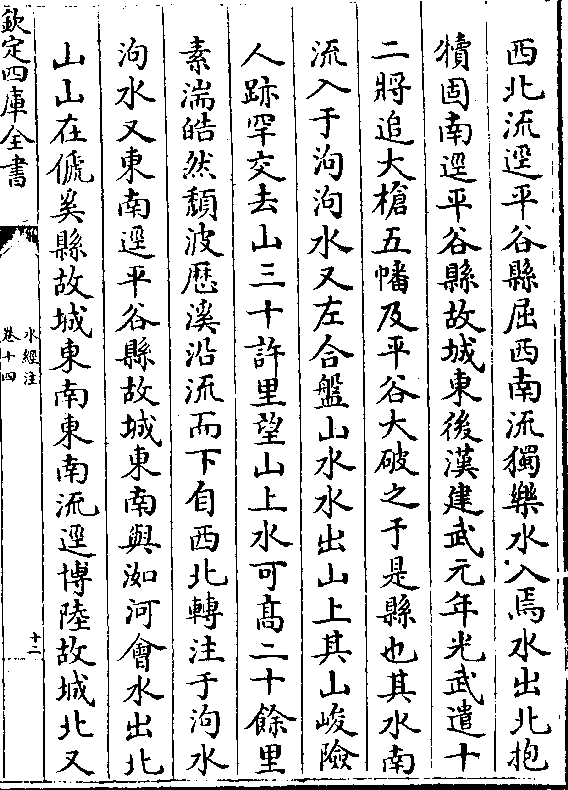 西北流逕平谷縣屈西南流獨樂水入焉水出北抱
犢固南逕平谷縣故城東後漢建武元年光武遣十
二將追大槍五幡及平谷大破之于是縣也其水南
流入于泃泃水又左合盤山水水出山上其山峻險
人跡罕交去山三十許里望山上水可高二十餘里
素湍皓然頹波歷溪沿流而下自西北轉注于泃水
泃水又東南逕平谷縣故城東南與洳河會水出北
山山在傂奚縣故城東南東南流逕博陸故城北又
欽定四庫全書
水經注
卷十四
十二